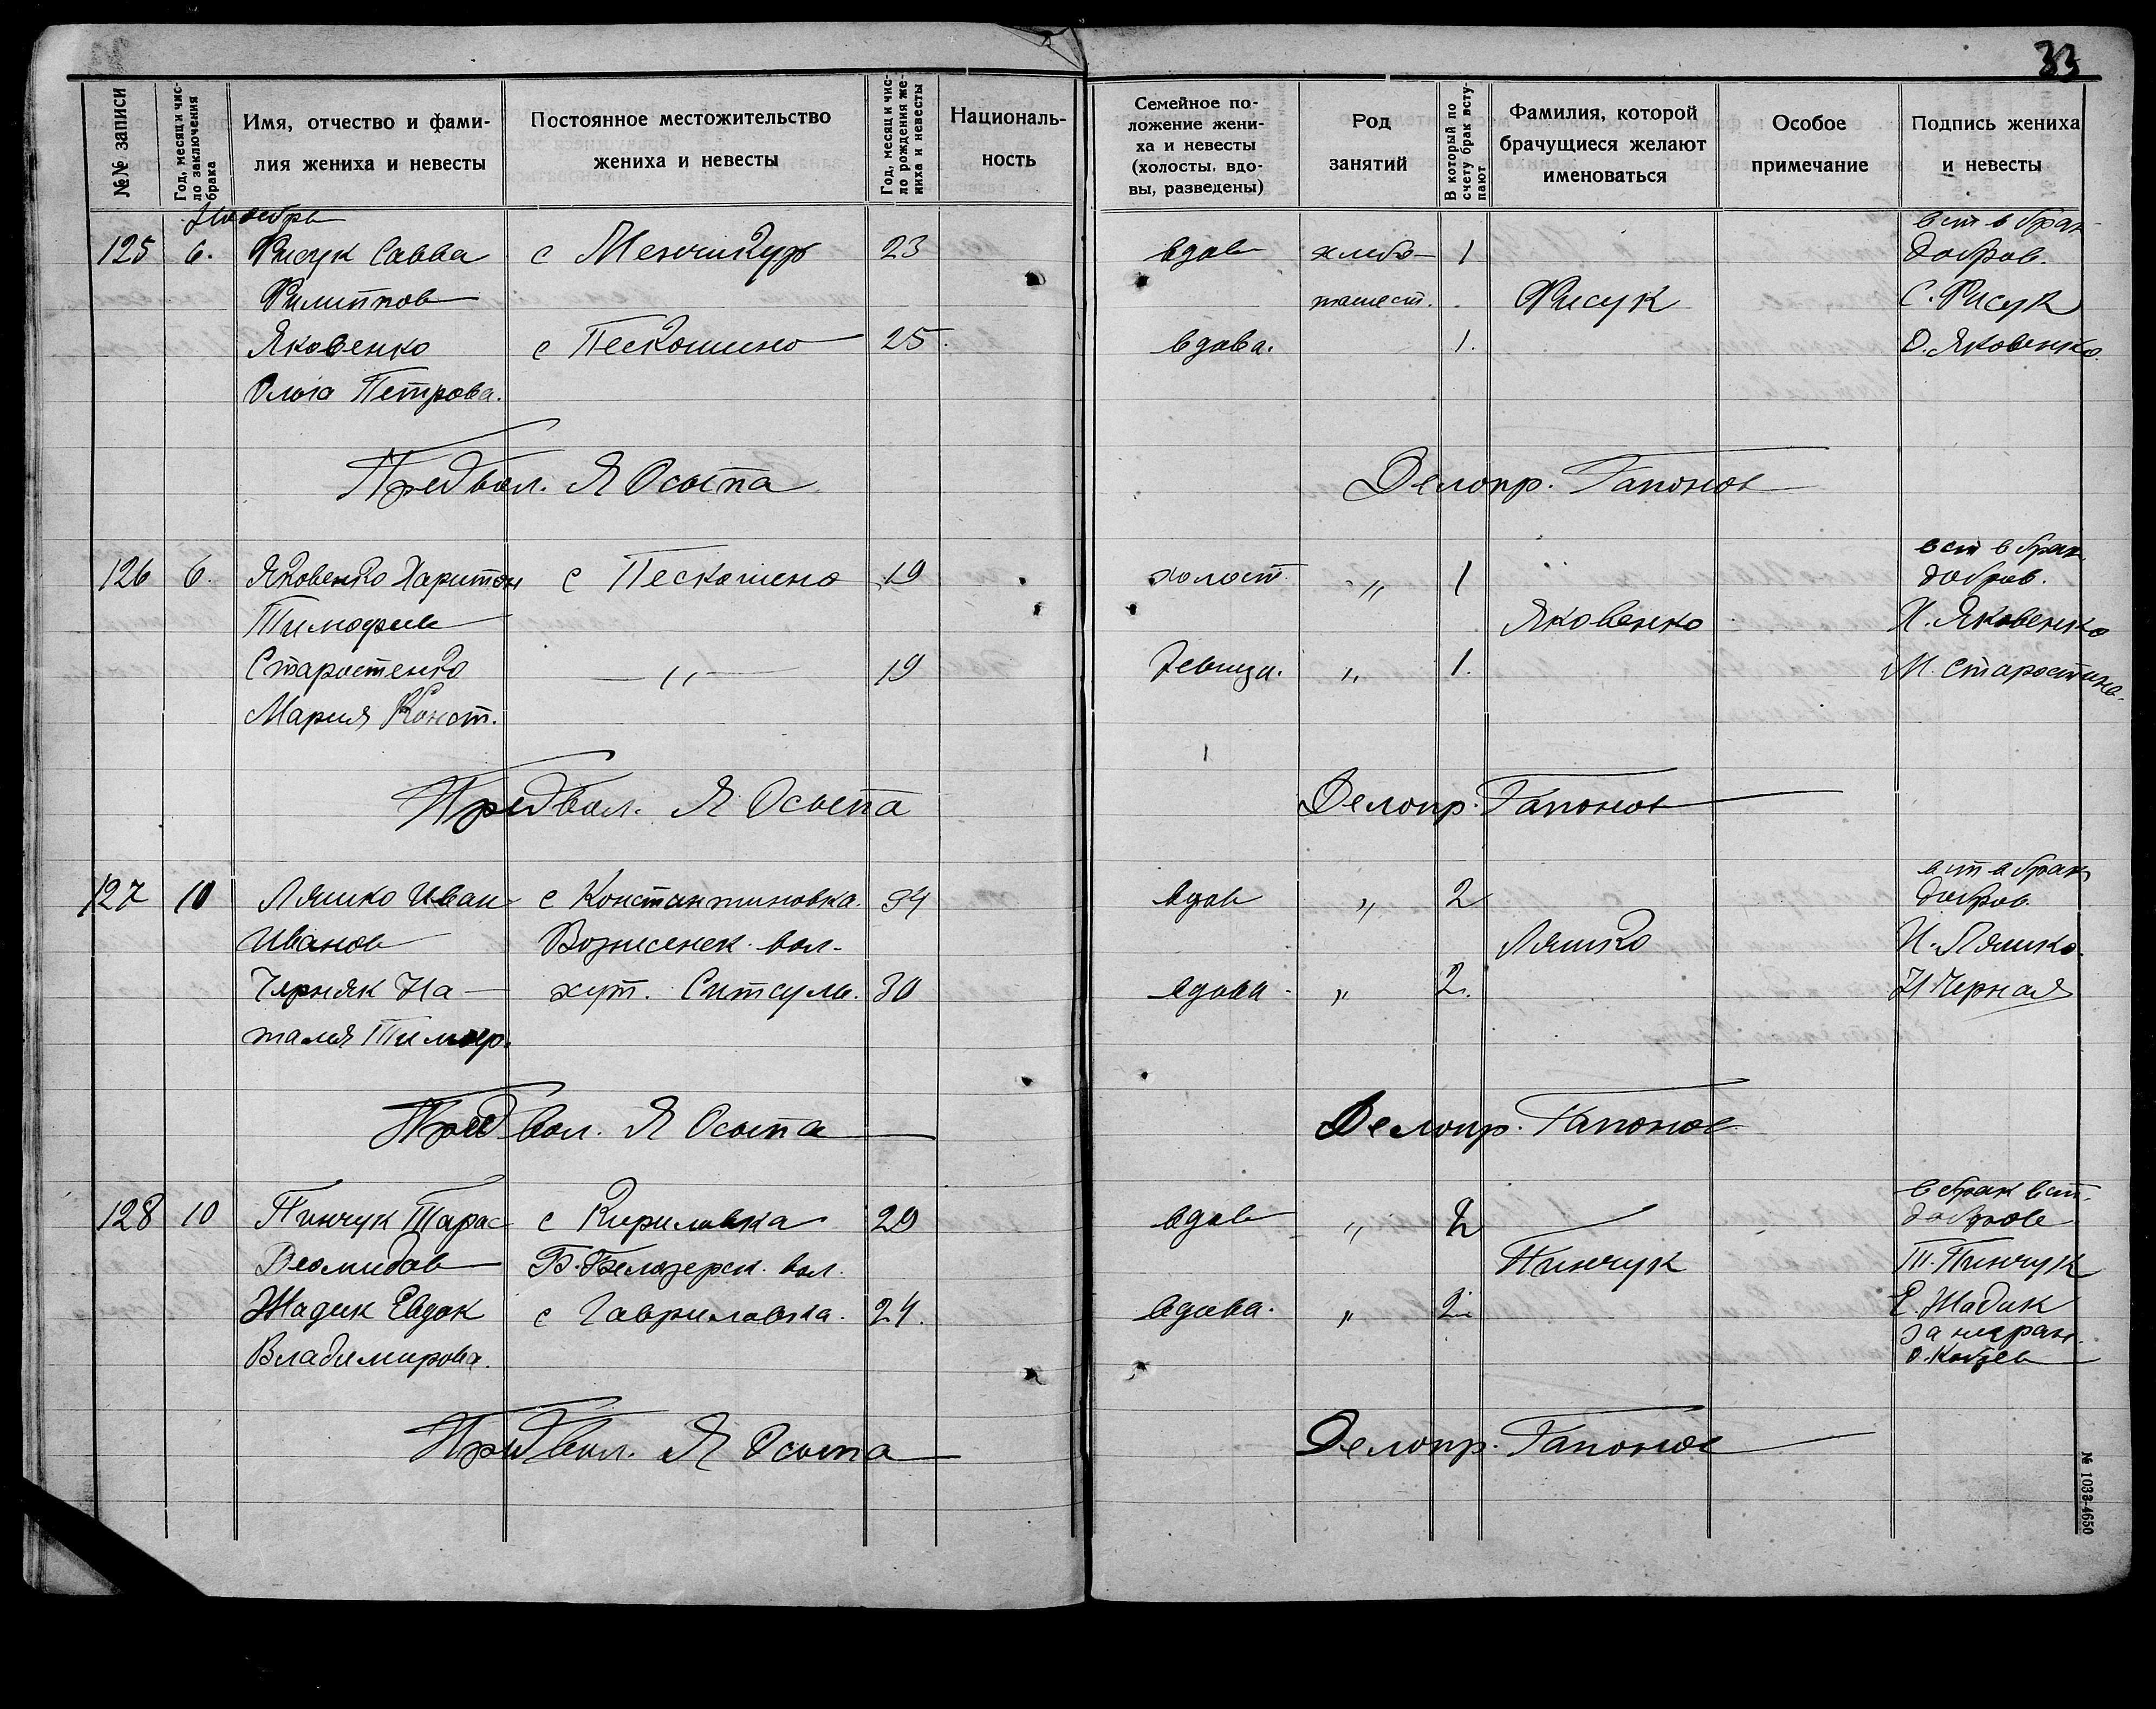 33
№№ записи
Год, месяц и чис-
ло заключения
брака
Имя, отчество и фами-
лия жениха и невесты
Постоянное местожительство
жениха и невесты
Год, месяц и чис-
ло рождения же-
ниха и невесты
Националь-
ность
Семейное по-
ложение жени-
ха и невесты
(холосты, вдо-
вы, разведены)
Род
занятий
В который по
счету брак всту-
пают
Фамилия, которой
брачущиеся желают
именоваться
Особое
примечание
Подпись жениха
и невесты
вст в брак
125 6. Фисук Савва с 23 вдов хлебо- 1 добров.
Филиппов пашест. Фисук С. Фисук
Яковенко с Пескошино 25. вдова. 1. О. Яковенко.
Ольга Петрова.
Предвол. Я Осыпа Делопр. Гапонов
вст в брак
126 6. Яковенко Харитон с Пескошено 19 холост „ 1 добров.
Тимофеев Яковенко Х. Яковенко
Старостенко — „ — 19 девица. „ 1. М.
Мария Конст.
Предвол. Я Осыпа Делопр. Гапонов
вст в брак
127 10 Ляшко Иван с Константиновка. 34 вдов „ 2 добров.
Иванов Вознесенск. вол. Ляшко И. Ляшко.
Черняк На- хут. 30 вдова „ 2. Н Черная
талия
Предвол. Я Осыпа Делопр. Гапонов
в брак вст.
128 10 Пинчук Тарас с Кириловка 29 вдов „ 2 добров
Деомидов Б. Белозерск. вол. Пинчук Т. Пинчук
Жадик Евдок с Гавриловка. 24. вдова. „ 2. Е. Жадик
за
Владимирова. О.
Предвол. Я Осыпа Делопр. Гапонов
№ 1033-4650